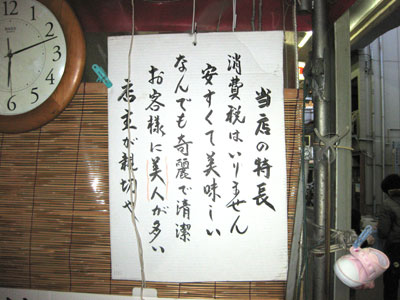 当店の特長
消費税はいりません
安すくて美味しい
なんでも奇麗で清潔
お客様に美人が多い
店主が親切や
12
1
2
3
4
5
6
7
8
9
10
11